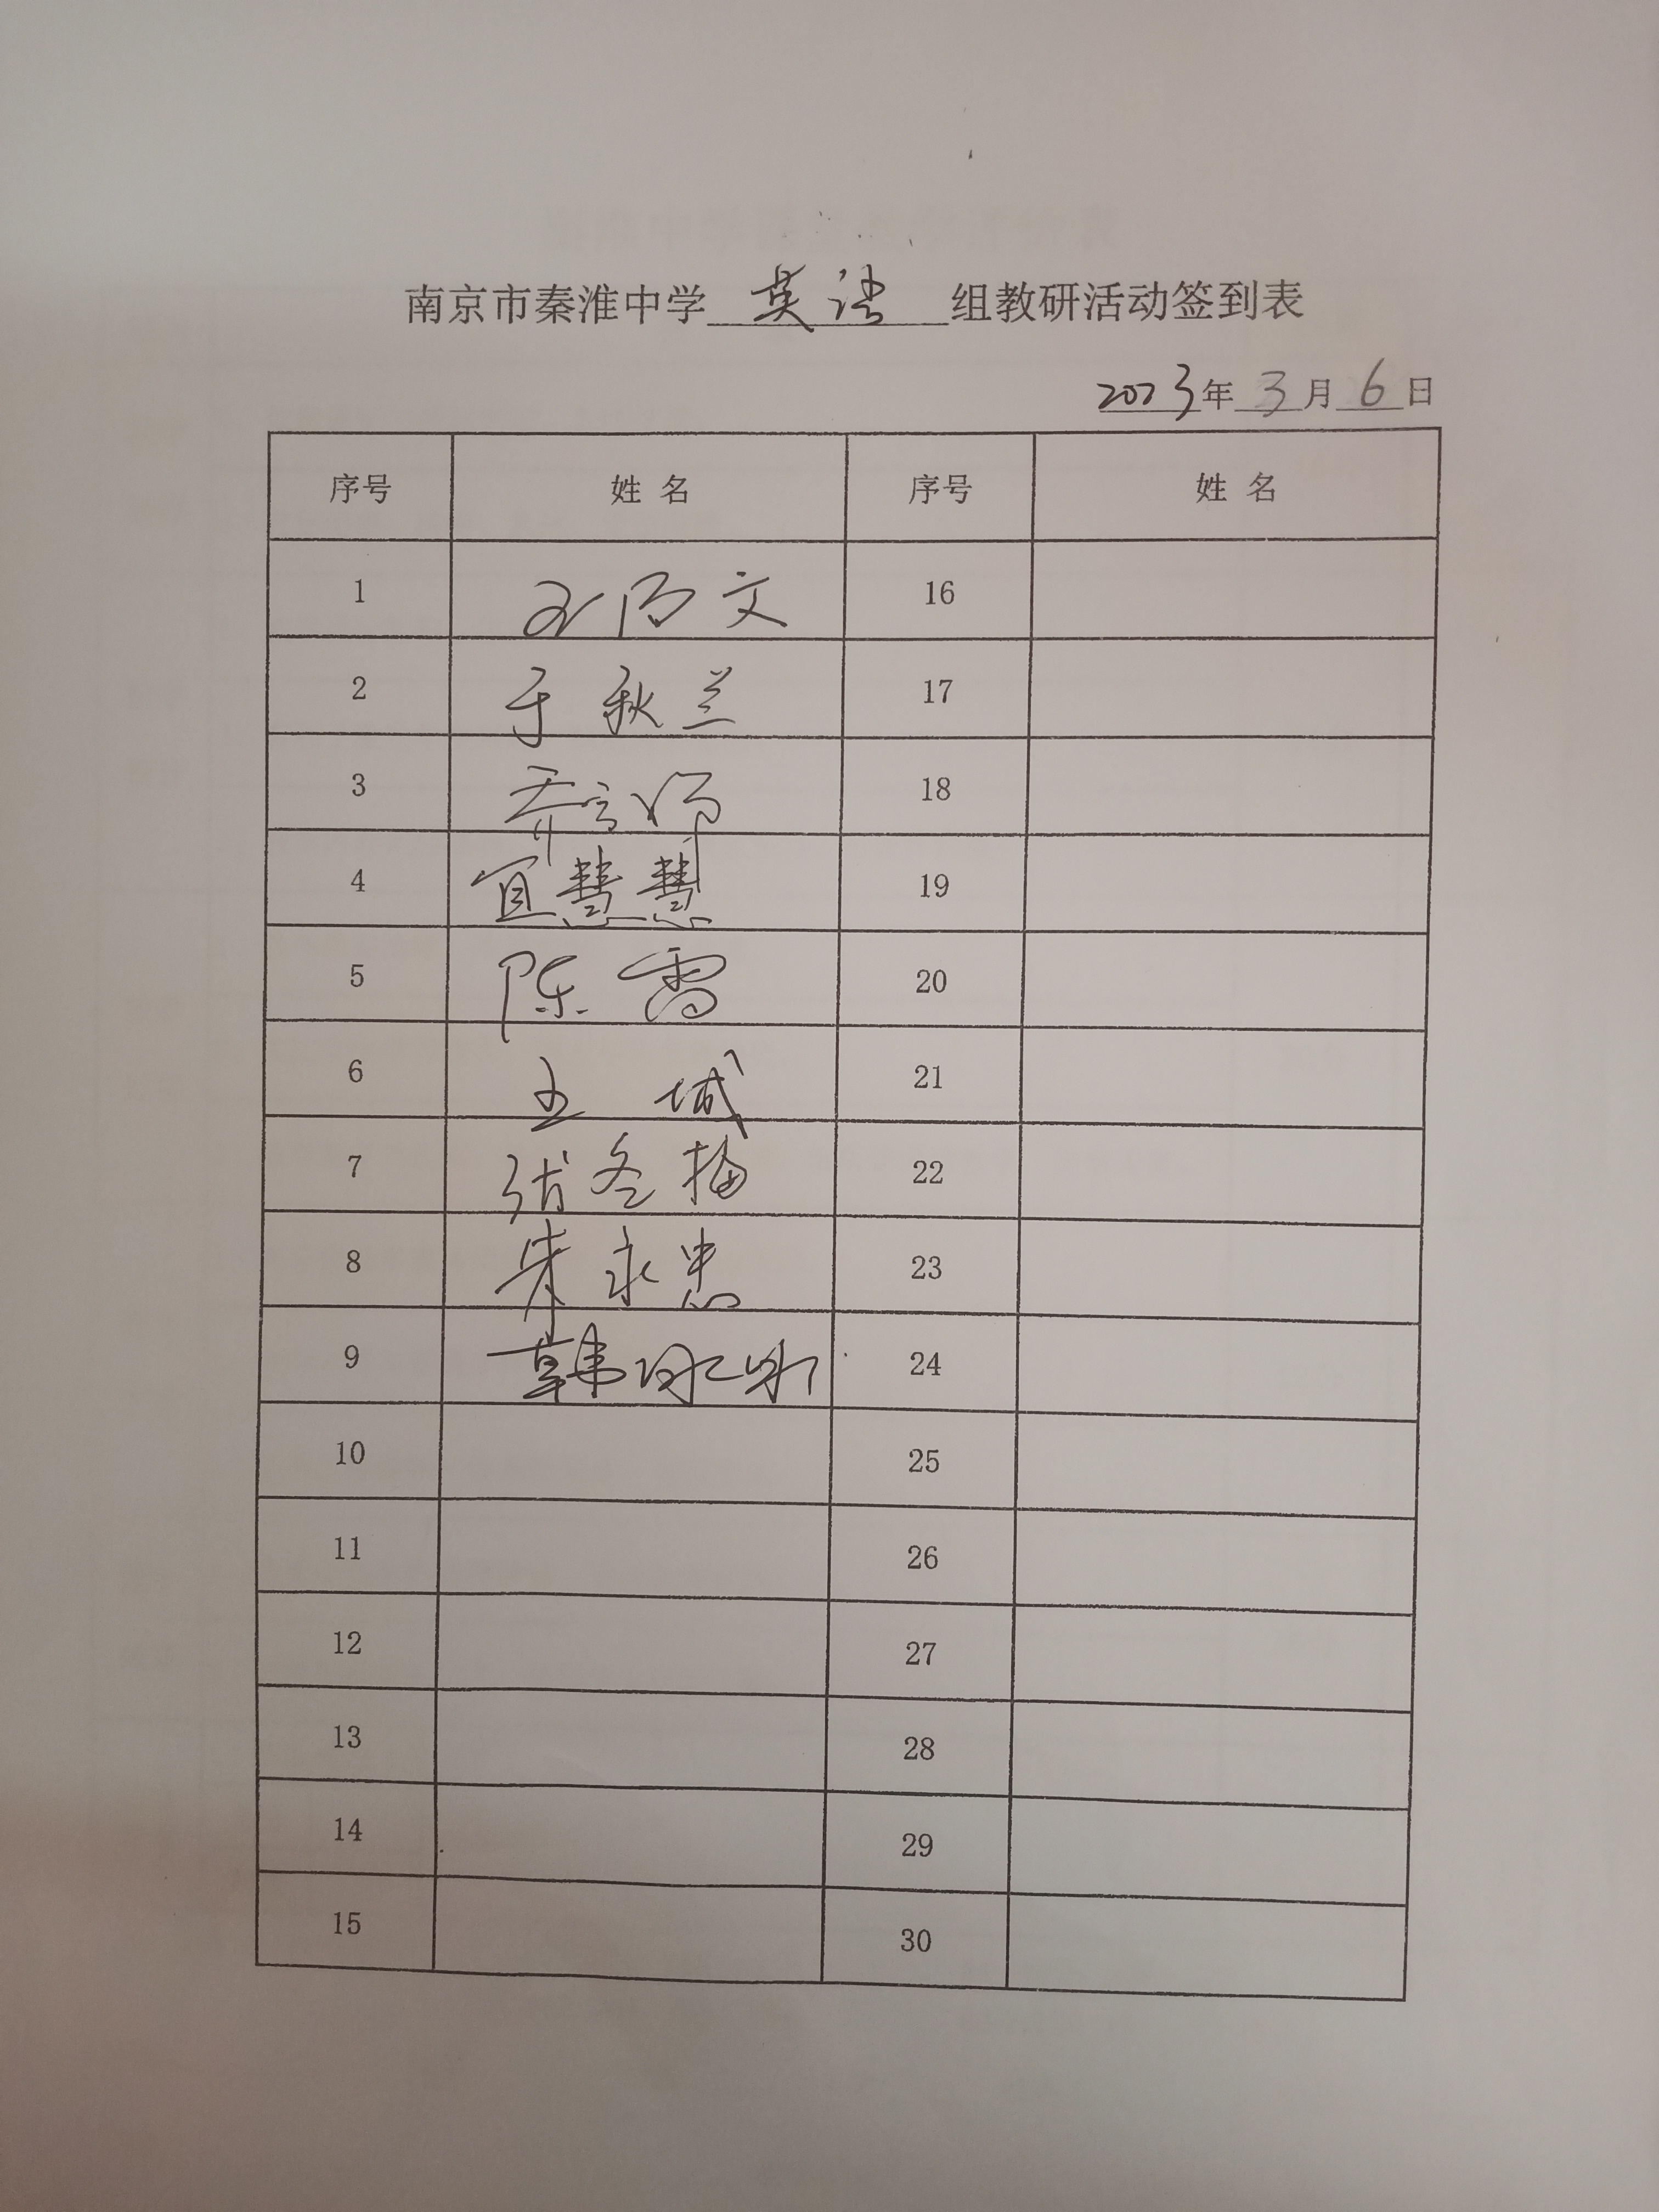 南京市秦淮中学英语组教研活动签到表
2023年3月6日
序号 姓名 序号 姓名
1 文 16
2 于秋兰 17
3 乔 18
4 宜慧慧 19
5 陈雷 20
6 王城 21
7 张冬梅 22
8 朱永忠 23
9 韩 24
10 25
11 26
12 27
13 28
14 29
15 30